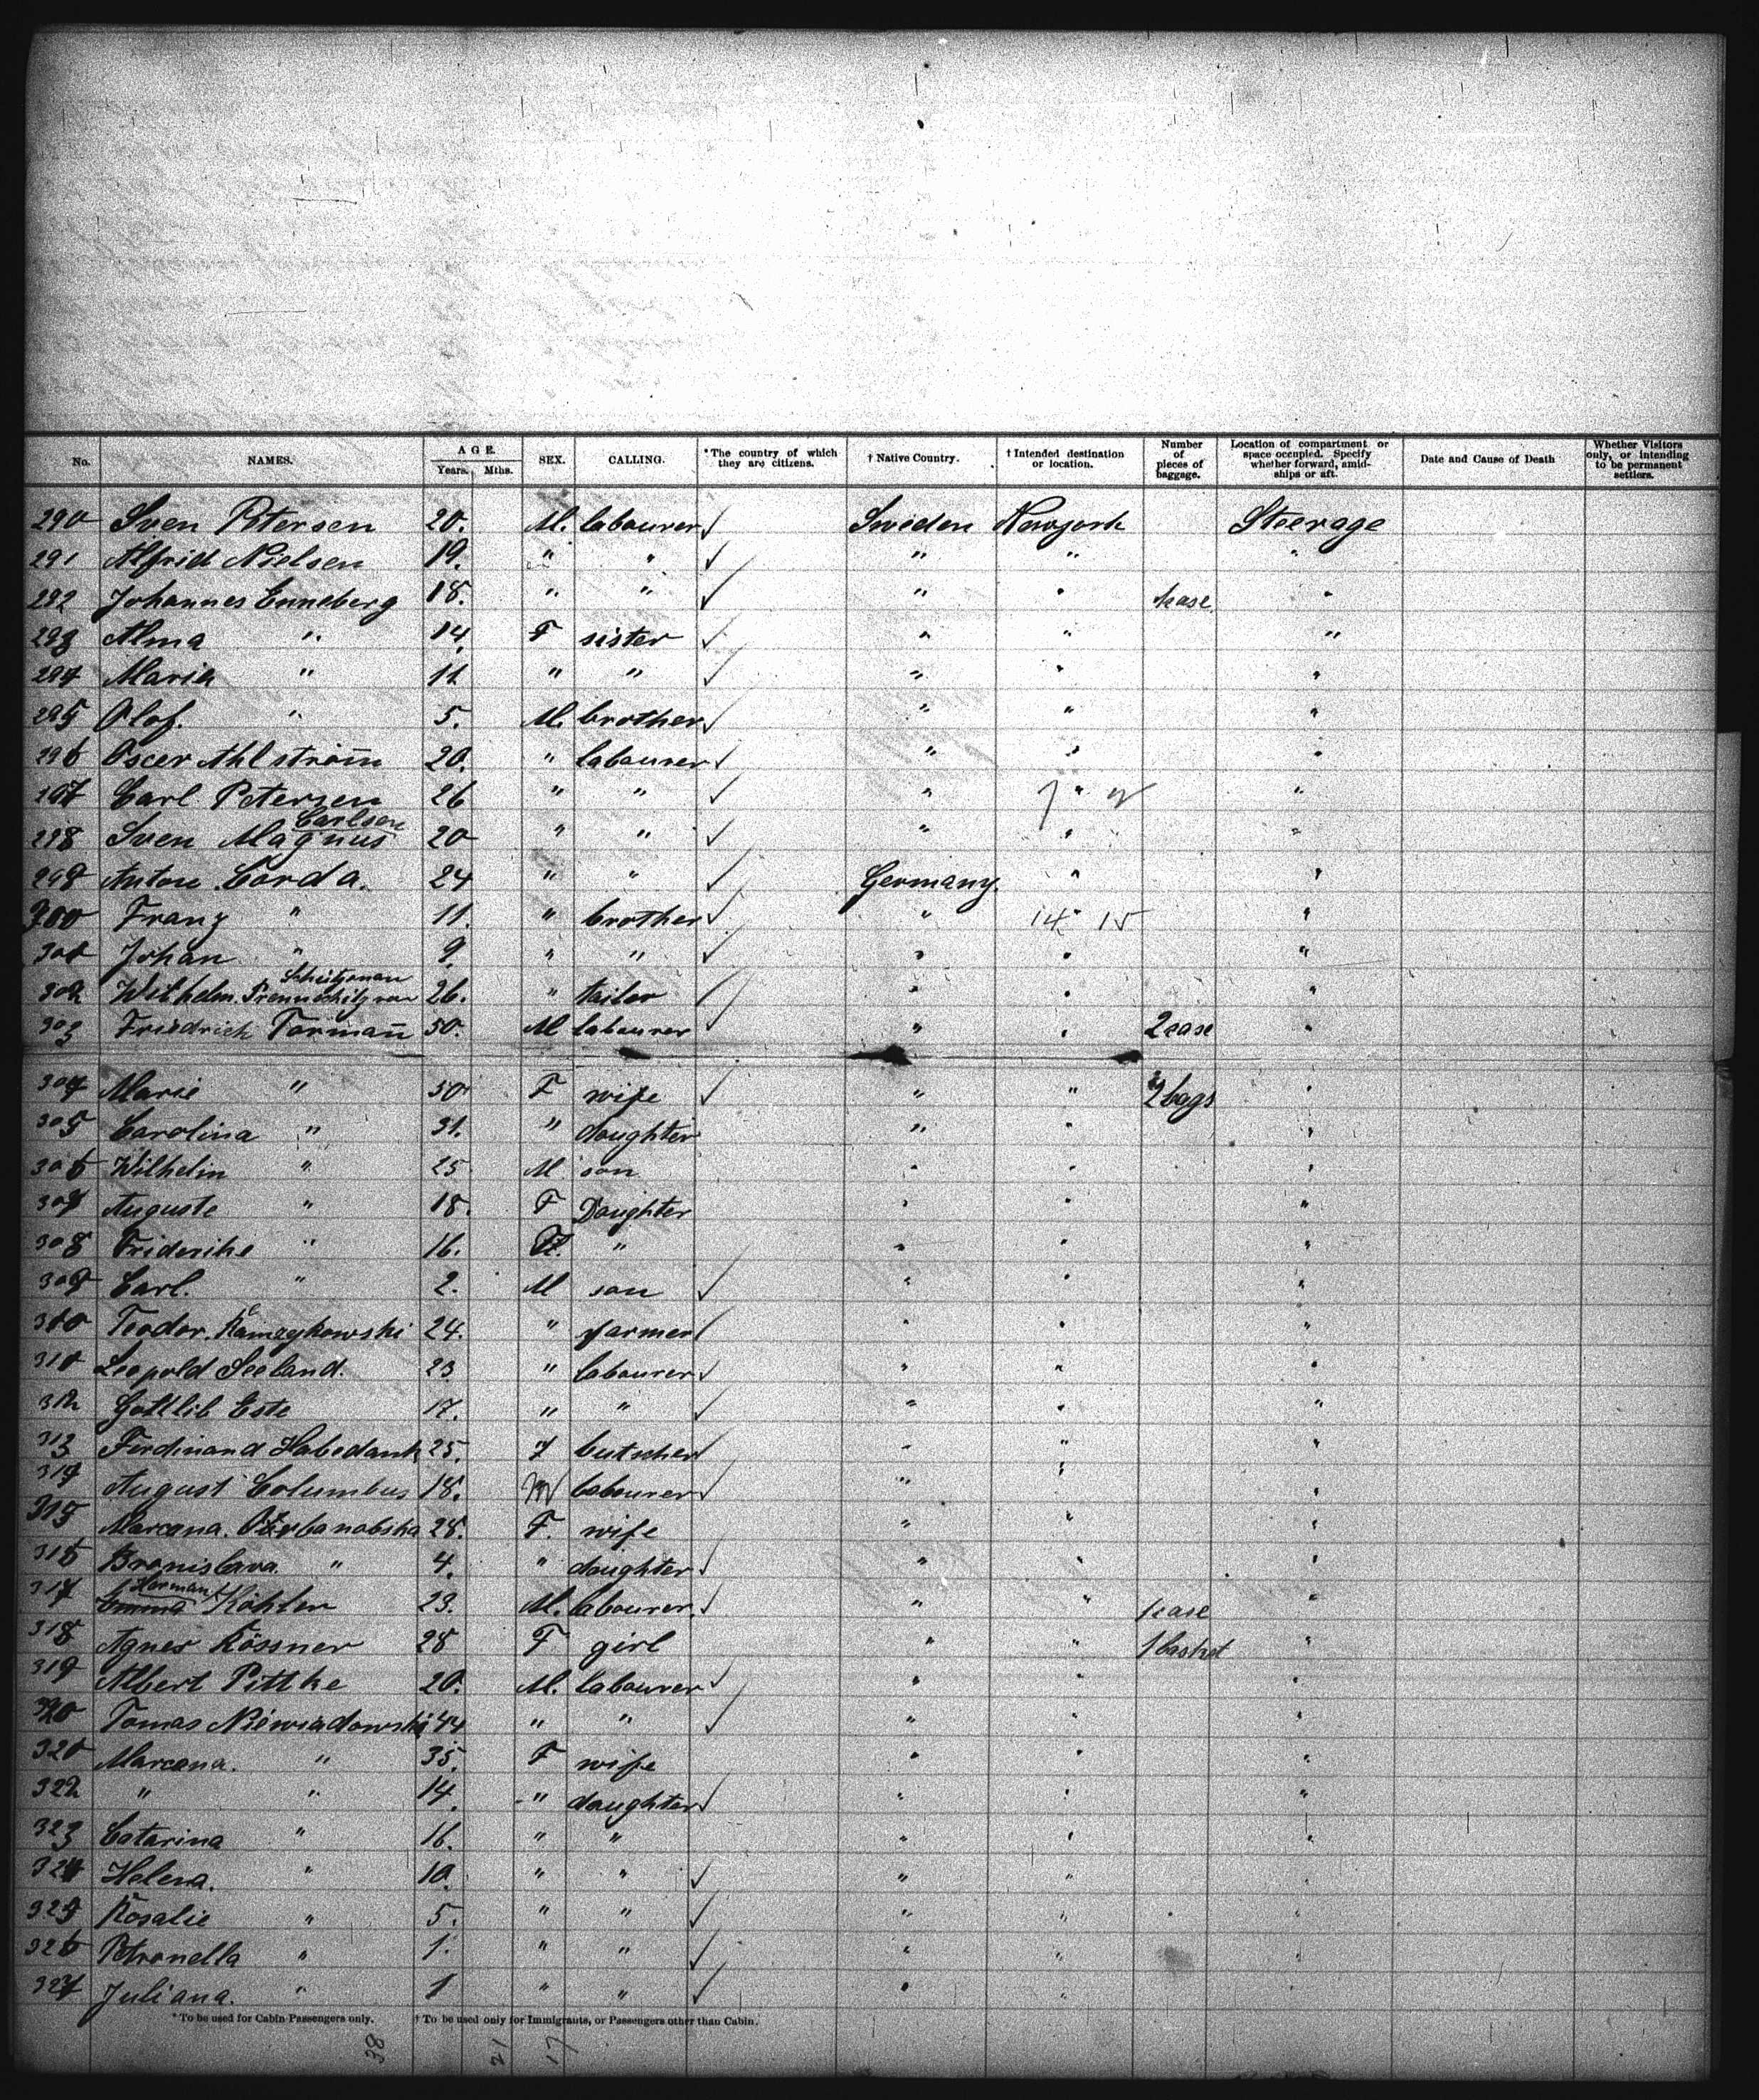 No. NAMES. AGE. Years. Mths. SEX. CALLING. *The country of which they are citizens. † Native Country. † Intended destination or location. Number of pieces of baggage. Location of compartment or space occupied. Specify whether forward, amidships or aft. Date and Cause of Death Whether Visitors only, or intending to be permanent settlers.
290 Sven Petersen 20. M. labourer ✓ Sweden Newyork Steerage
291 Alfrid Nielsen 19. " " ✓ " " "
292 Johannes Enneberg 18. " " ✓ " " 1 case "
293 Alma " 14. F sister ✓ " " "
294 Maria " 11 " " ✓ " " "
295 Olof. " 5. M. brother ✓ " " "
296 Oscar Ahlström 20. " labourer ✓ " " "
297 Carl Petersen 26 " " ✓ " " "
Carlsen
298 Sven Magnus 20 " " ✓ " " "
299 Anton Corda. 24 " " ✓ Germany. " "
300 Franz " 11. " brother ✓ " 14 " 15 "
301 Johan " 9. " " ✓ " " "
Schützman
302 Wilhelm 26. " tailor ✓ " " "
303 Friedrich Torman̄ 50. M labourer ✓ " " 2 case "
304 Marie " 50 F wife ✓ " " 2 bags "
305 Carolina " 31. " daughter " " "
306 Wilhelm " 25 M son " " "
307 Auguste " 18. F Daughter " " "
308 Friderike " 16. F. " " " "
309 Carl. " 2. M son ✓ " " "
310 Teodor. Kamzykowski 24. " farmer ✓ " " "
311 Leopold Seeland. 23. " labourer ✓ " " "
312 Gottlib Este 17. " " ✓ " " "
313 Ferdinand Habedank 25. " butscher ✓ " " "
314 August Columbus 18. M labourer ✓ " " "
315 Marcana. 28. F. wife " " "
316 Bronislava. " 4. " daughter ✓ " " "
Herman
317 Emma Köhler 23. M. labourer. ✓ " " 1 case "
318 Agnes Rössner 28 F girl " " 1 basket "
319 Albert Pittke 20. M. labourer ✓ " " "
320 Tomas Niewiadowski 44 " " ✓ " " "
321 Marcana. " 35. F wife " " "
322 " " 14. " daughter ✓ " " "
323 Catarina " 16. " " " " "
324 Helena. " 10. " " ✓ " " "
325 Rosalie " 5. " " ✓ " " "
326 Petronella " 1. " " ✓ " " "
327 Juliana. " 1 " " ✓ " " "
* To be used for Cabin Passengers only. † To be used only for Immigrants, or Passengers other than Cabin.
38 21 17